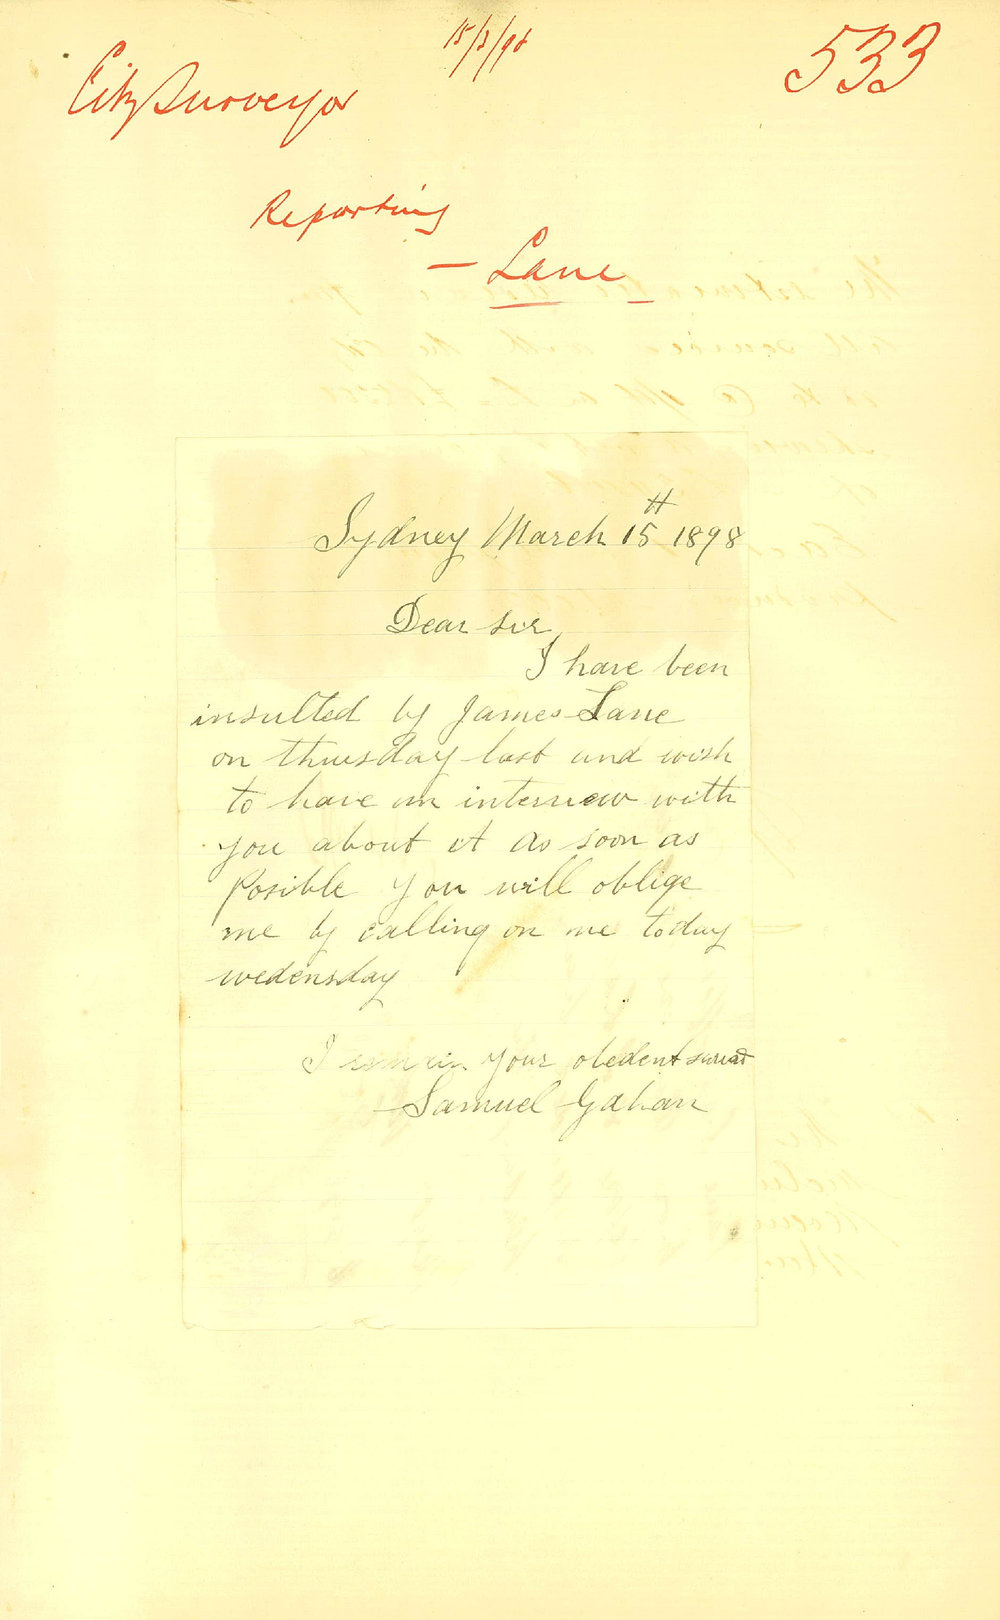 15/3/98
533
City Surveyor
Reporting
— Lane
Sydney March 15th 1898
Dear sir,
I have been
insulted by James Lane
on thuesday last and wish
to have an interview with
you about it as soon as
Posible you will oblige
me by calling on me today
wedensday
I remain your obedent
Samuel Gahan